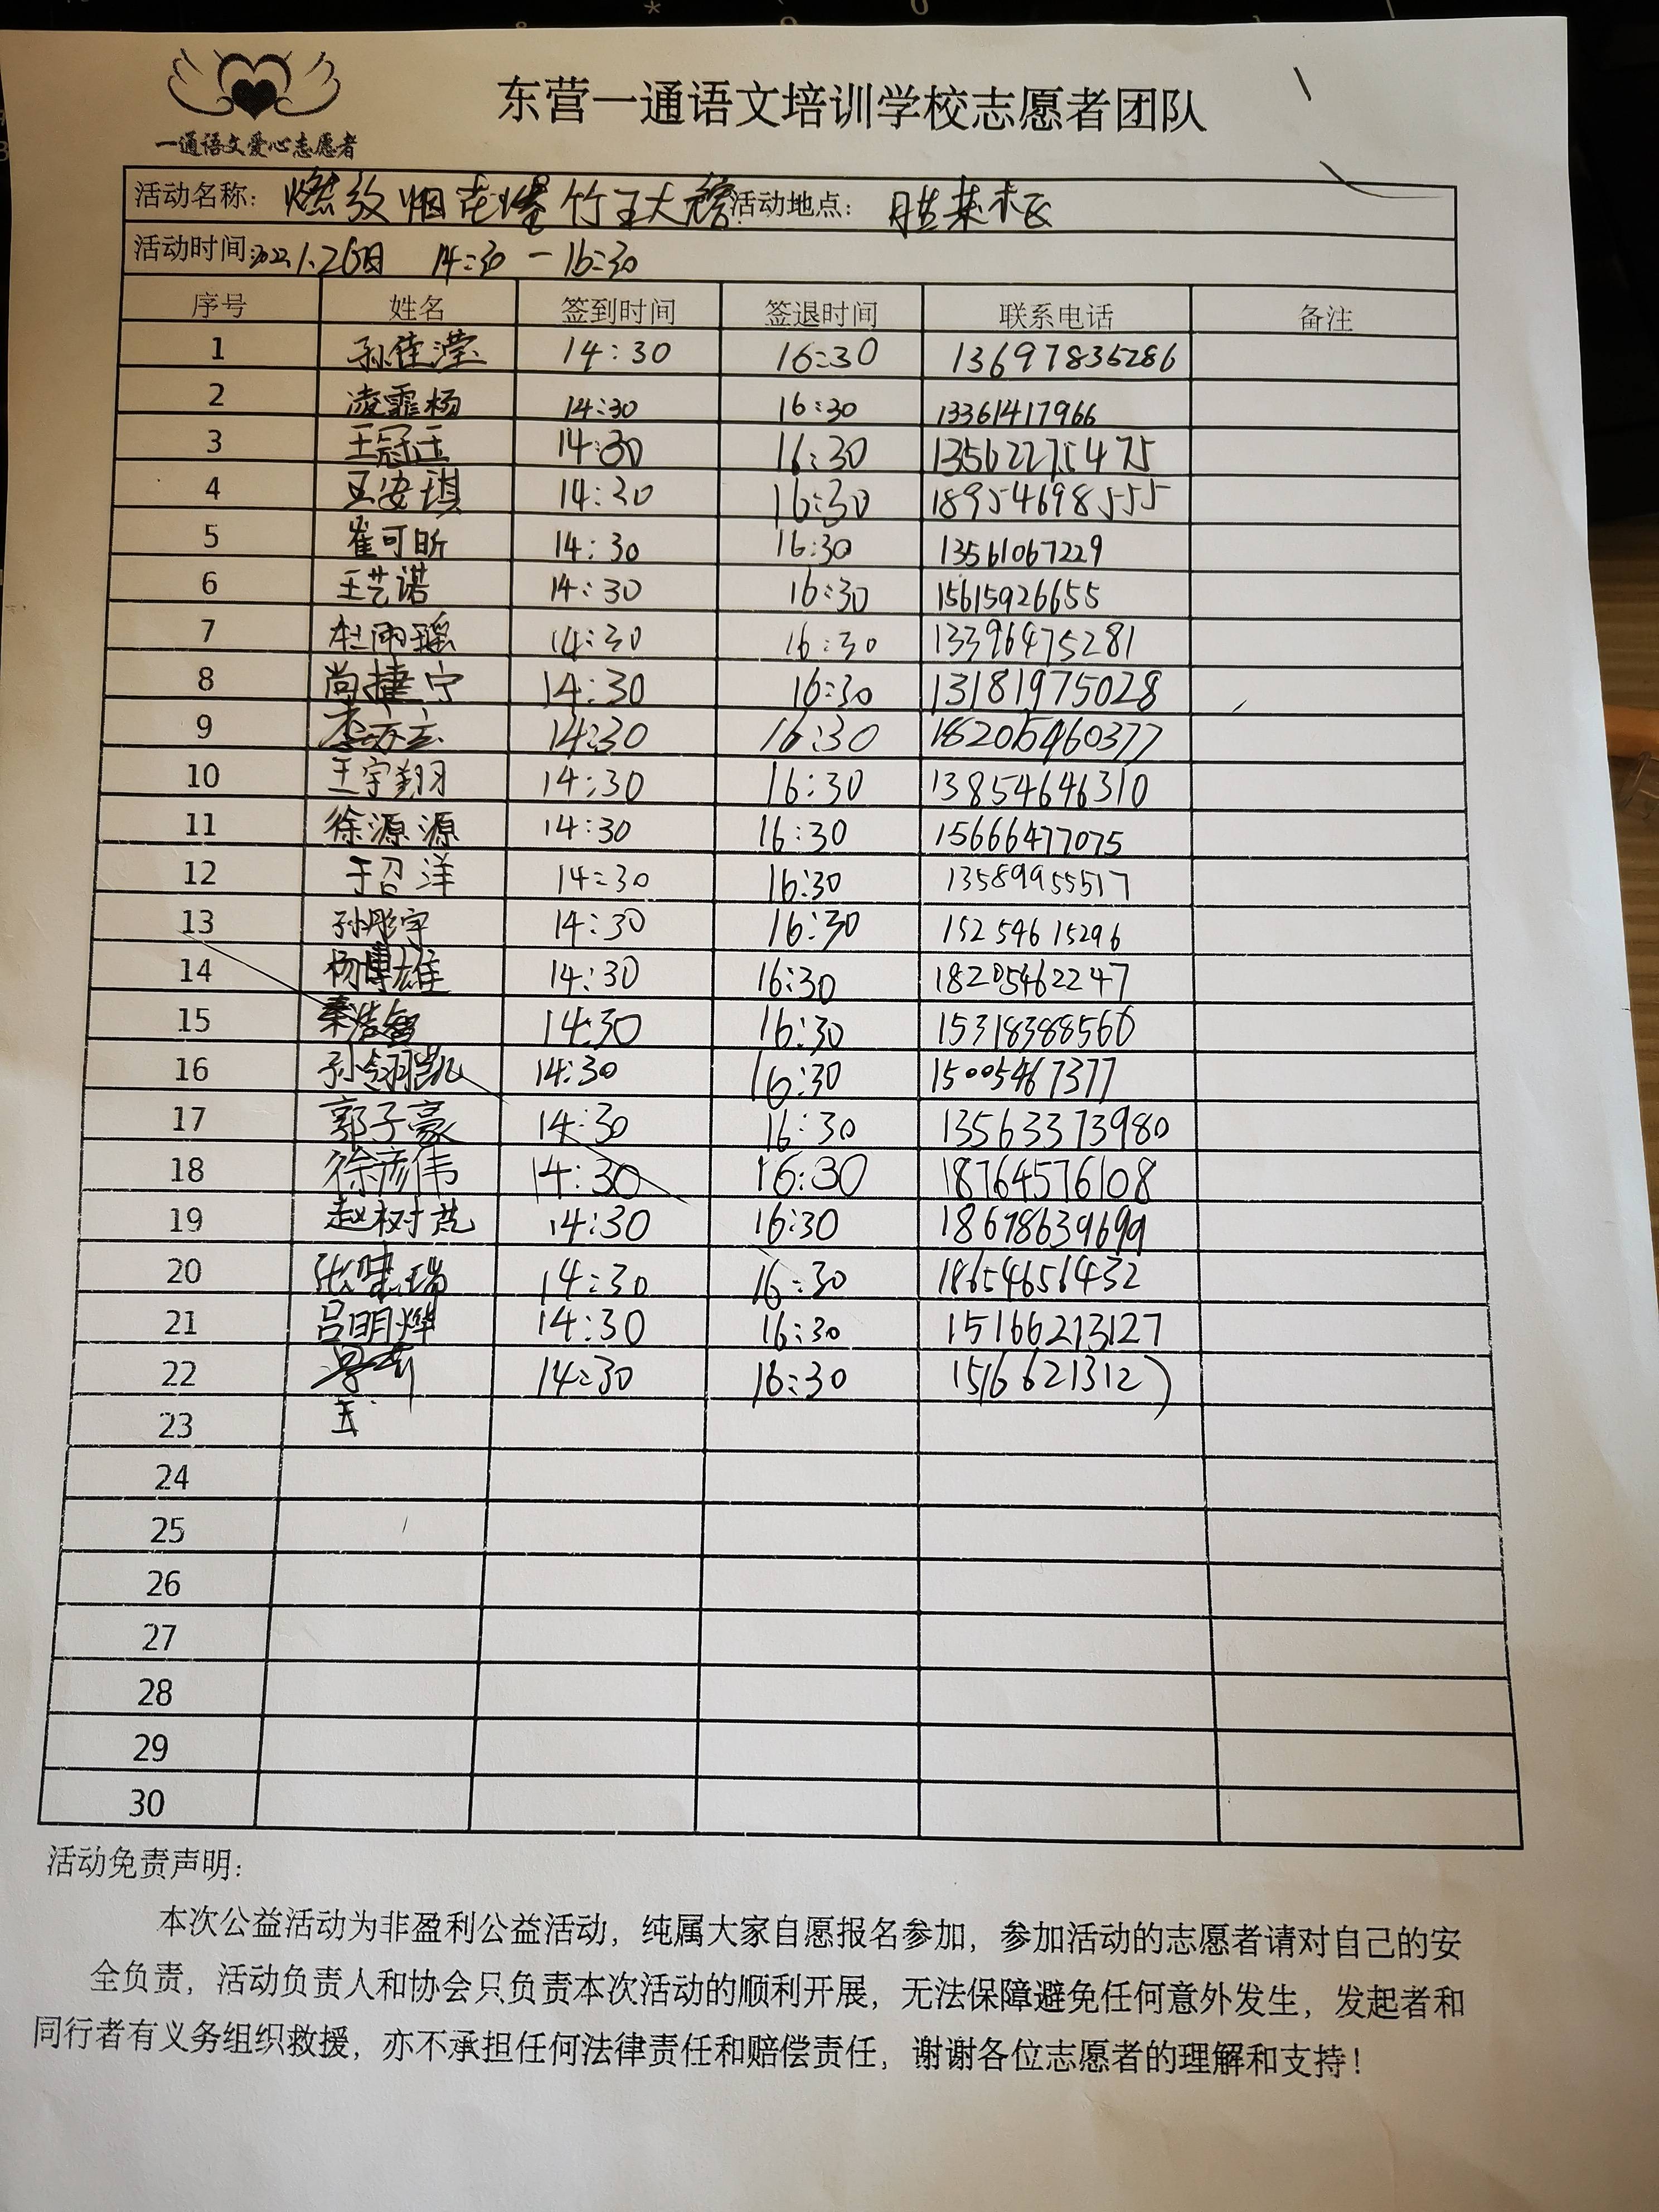 一通语文爱心志愿者
东营一通语文培训学校志愿者团队
活动名称: 燃放烟花爆竹 活动地点: 胜莱社区
活动时间: 2022.1.26日 14:30 — 16:30
序号 姓名 签到时间 签退时间 联系电话 备注
1 孙佳滢 14:30 16:30 13697836286
2 凌霏杨 14:30 16:30 13361417966
3 王冠玉 14:30 16:30 13562275475
4 王安琪 14:30 16:30 18954698555
5 崔可昕 14:30 16:30 13561067229
6 王艺诺 14:30 16:30 15615926655
7 杜雨瑶 14:30 16:30 13396475281
8 尚捷宁 14:30 16:30 13181975028
9 14:30 16:30 18205460377
10 王宇翔 14:30 16:30 13854646310
11 徐源源 14:30 16:30 15666477075
12 于召洋 14:30 16:30 13589955517
13 孙彤宇 14:30 16:30 15254615296
14 杨博雄 14:30 16:30 18205462247
15 秦浩智 14:30 16:30 15318388560
16 孙翎凯 14:30 16:30 15005467377
17 郭子豪 14:30 16:30 13563373980
18 徐彦伟 14:30 16:30 18764576108
19 14:30 16:30 18678639699
20 14:30 16:30 18654656432
21 吕明烨 14:30 16:30 15166213127
22 14:30 16:30 15166213127
23 王
24
25
26
27
28
29
30
活动免责声明:
本次公益活动为非盈利公益活动, 纯属大家自愿报名参加, 参加活动的志愿者请对自己的安
全负责, 活动负责人和协会只负责本次活动的顺利开展, 无法保障避免任何意外发生, 发起者和
同行者有义务组织救援, 亦不承担任何法律责任和赔偿责任, 谢谢各位志愿者的理解和支持!